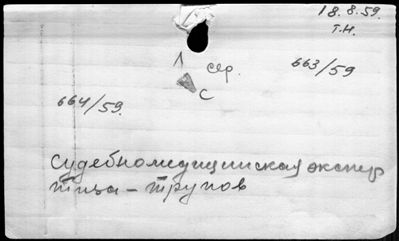 18.8.59.
Т.Н.
1
сер. 663/59
С
664/59.
Судебномедицинская экспер
тиза - трупов